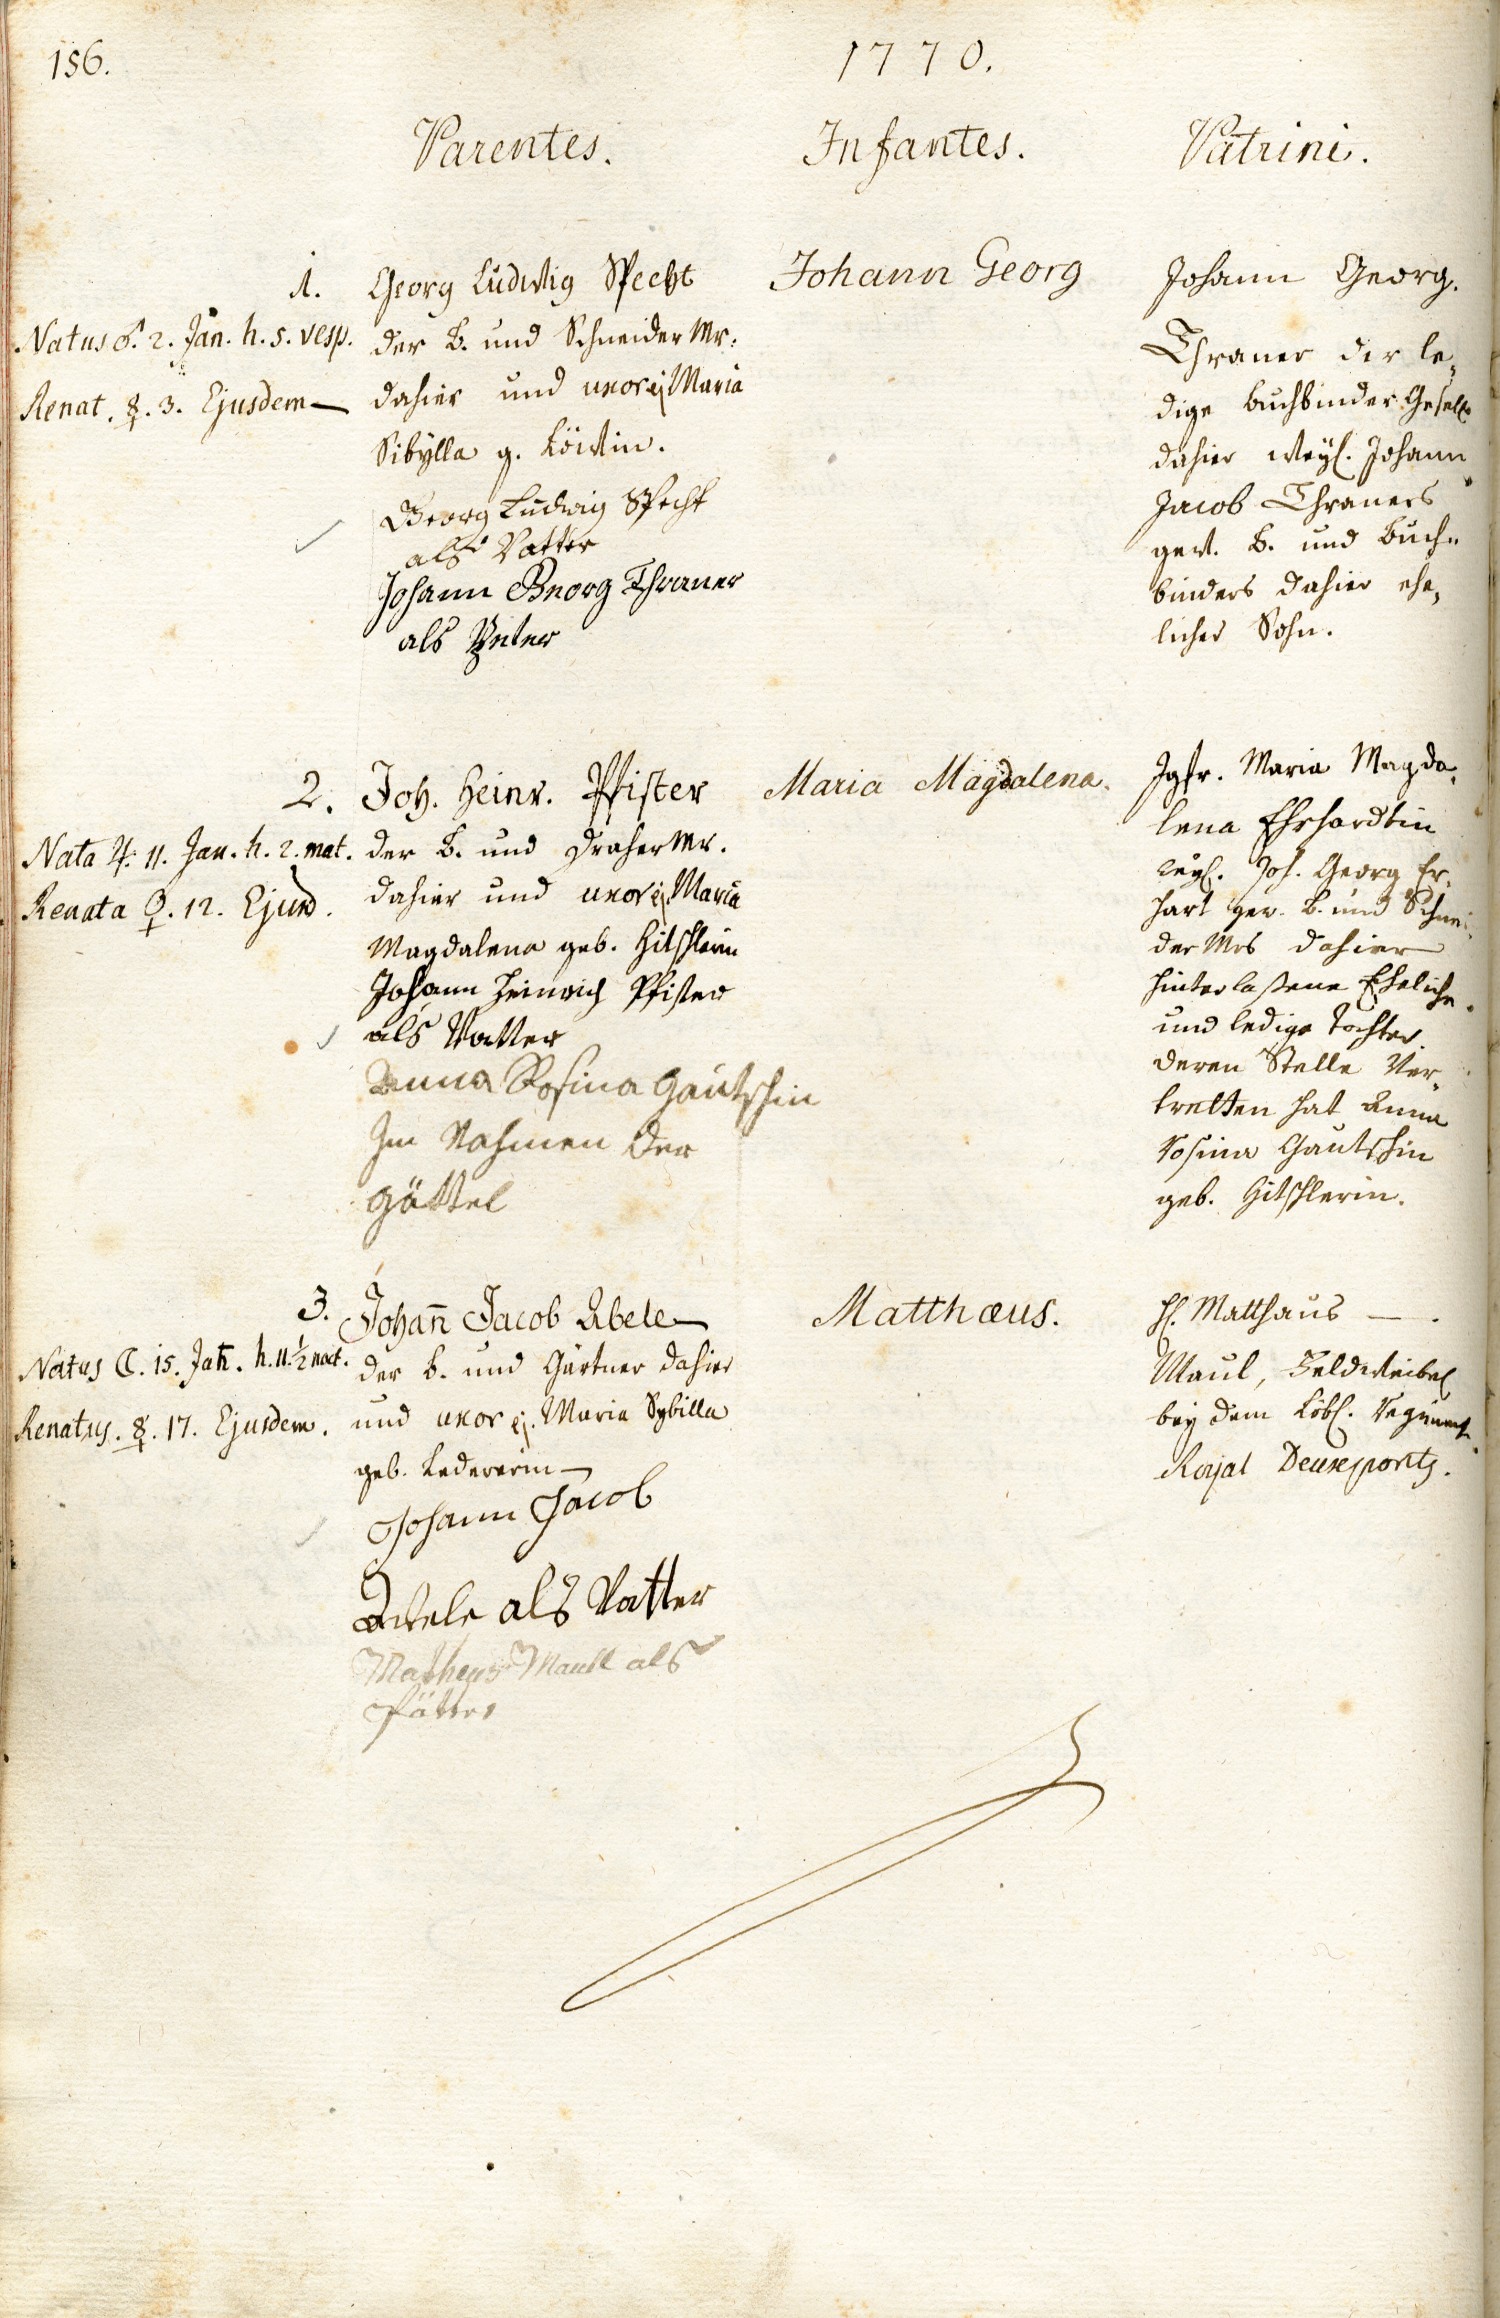 156.
1770.
Parentes. Infantes. Patrini.
1.
Natus ♂. 2. Jan. h. 5. vesp.
Renat. ☿. 3. Ejusdem
Georg Ludwig Specht
der B. und Schneider Mr.
dahier und uxor ej. Maria
Sibÿlla g. Löwin.
Georg Ludwig Specht
als Vatter
Johann Georg Thraner
als Petter
Johann Georg
Johann Georg.
Thraner der le„
dige buchbinder Gesell
dahier weyl. Johann
Jacob Thraners
gew. B. und Buch„
binders dahier ehe„
licher Sohn.
2.
Nata ♃. 11. Jan. h. 2. mat.
Renata ♀. 12. Ejusd.
Joh. Heinr. Pfister
der B. und Dreher Mr.
dahier und uxor ej. Maria
Magdalena geb. Hitschlerin
Johann Heinrich Pfister
als Vatter
Anna Rosina Gautschin
Im Nahmen der
göttel
Maria Magdalena.
Jgfr. Maria Magda„
lena Ehrhardtin
weyl. Joh. Georg Er„
hart gew. B. und Schnei„
der Mrs dahier
hinterlaßene Eheliche
und ledige Tochter
deren Stelle Ver„
tretten hat Anna
Rosina Gautschin
geb. Hitschlerin.
3.
Natus ☾. 15. Jan. h. 11. 1/2 noct.
Renatus. ☿. 17. Ejusdem.
Johan̄ Jacob Abele
der B. und Gärtner dahier
und uxor ej. Maria Sybilla
geb. Ledererin
Johann Jacob
Abele als Vatter
Matheus Maull als
Pätter
Matthæus.
H. Matthäus
Maul, Feldweibel
bey dem Löbl. Regiment
Royal Deuxponts.